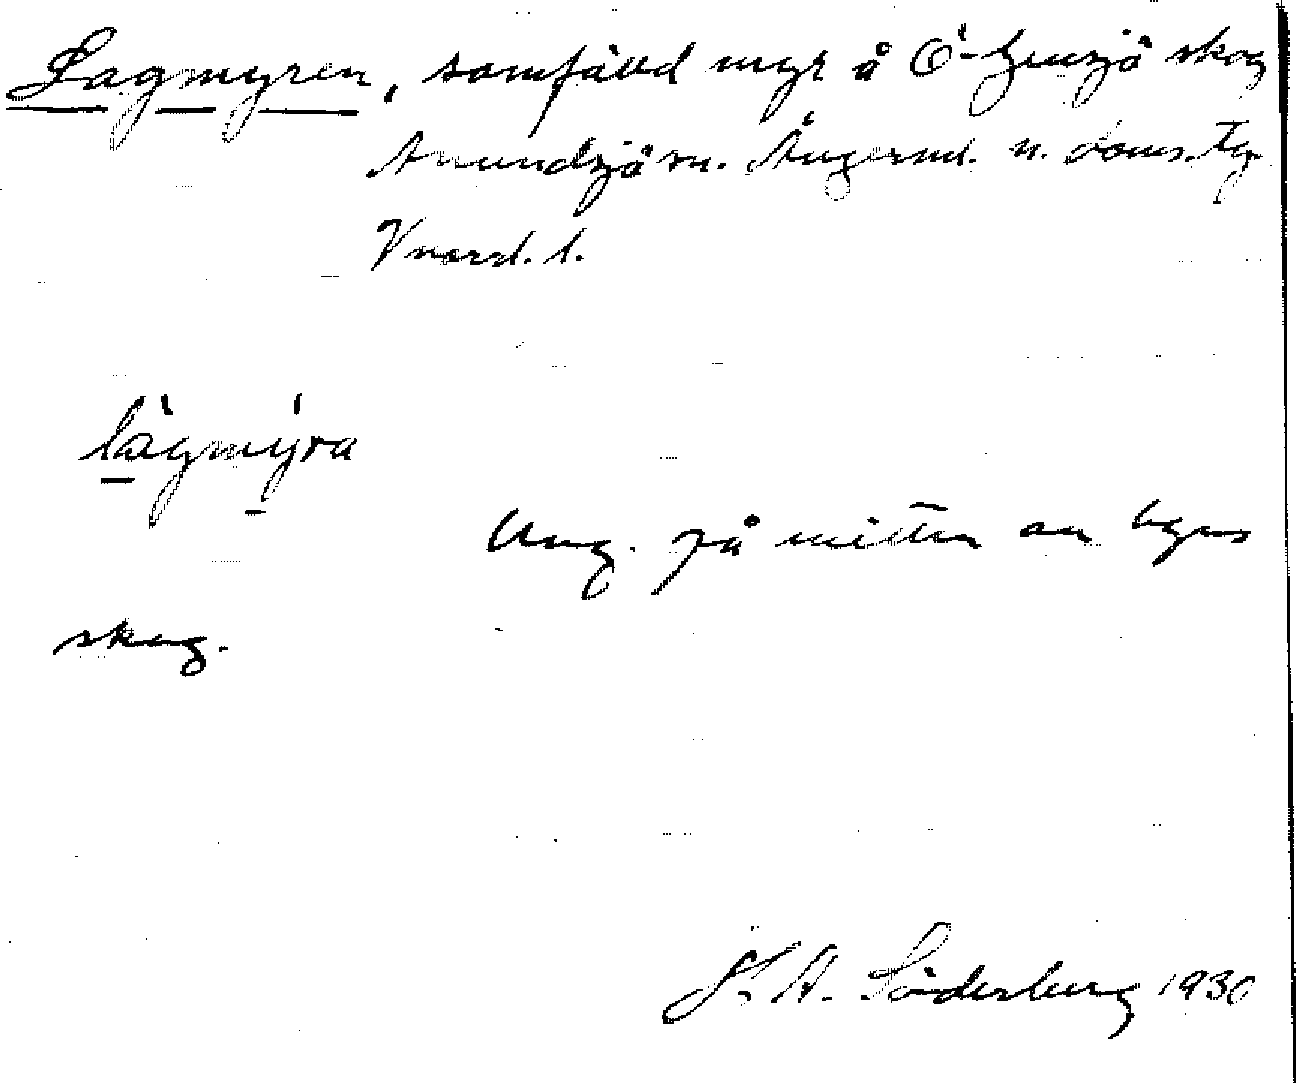 Lagmyren, samfälld myr å Ö-Gensjö skog
Anundsjö sn. Ångerml. n. doms. tg
Vnorrl. l.
làgmýra
Ung. på mitten av byns
skog.
K. A. Söderberg 1930